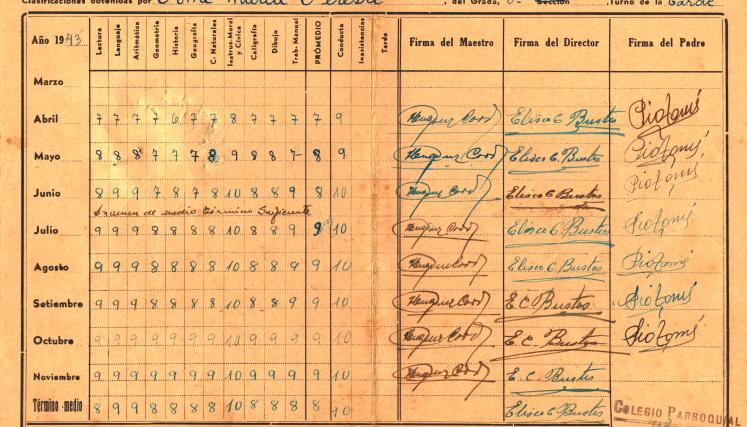 Clasificaciones obtenidas por Tomé María Teresa, del Grado, 6º Sección, Turno de la tarde
Año 1943 Lectura Lenguaje Aritmética Geometría Historia Geografía C. Naturales Instruc. Moral y Cívica Caligrafía Dibujo Trab. Manual PROMEDIO Conducta Inasistencias Tarde Firma del Maestro Firma del Director Firma del Padre
Marzo
Abril 7 7 7 7 6 7 7 8 7 7 7 7 9 Eliseo C Bustos Pio Tomé
Mayo 8 8 8 7 7 7 8 9 8 8 7 8 9 Eliseo C. Bustos Pio Tomé
Junio 8 9 9 7 8 7 8 10 8 8 9 8 10 Eliseo C Bustos Pio Tomé
Examen de medio término Suficiente
Julio 9 9 9 8 8 8 8 10 8 8 9 9 10 Eliseo C Bustos Pio Tomé
Agosto 9 9 9 8 8 8 8 10 8 8 9 9 10 Eliseo C Bustos Pio Tomé
Setiembre 9 9 9 8 8 8 8 10 8 8 9 9 10 E. C. Bustos Pio Tomé
Octubre 9 9 9 9 9 9 9 10 9 9 9 9 10 E. C. Bustos Pio Tomé
Noviembre 9 9 9 9 9 9 9 10 9 9 9 9 10 E. C. Bustos
Término medio 8 9 9 8 8 8 8 10 8 8 8 8 10 Eliseo C Bustos
COLEGIO PARROQUIAL